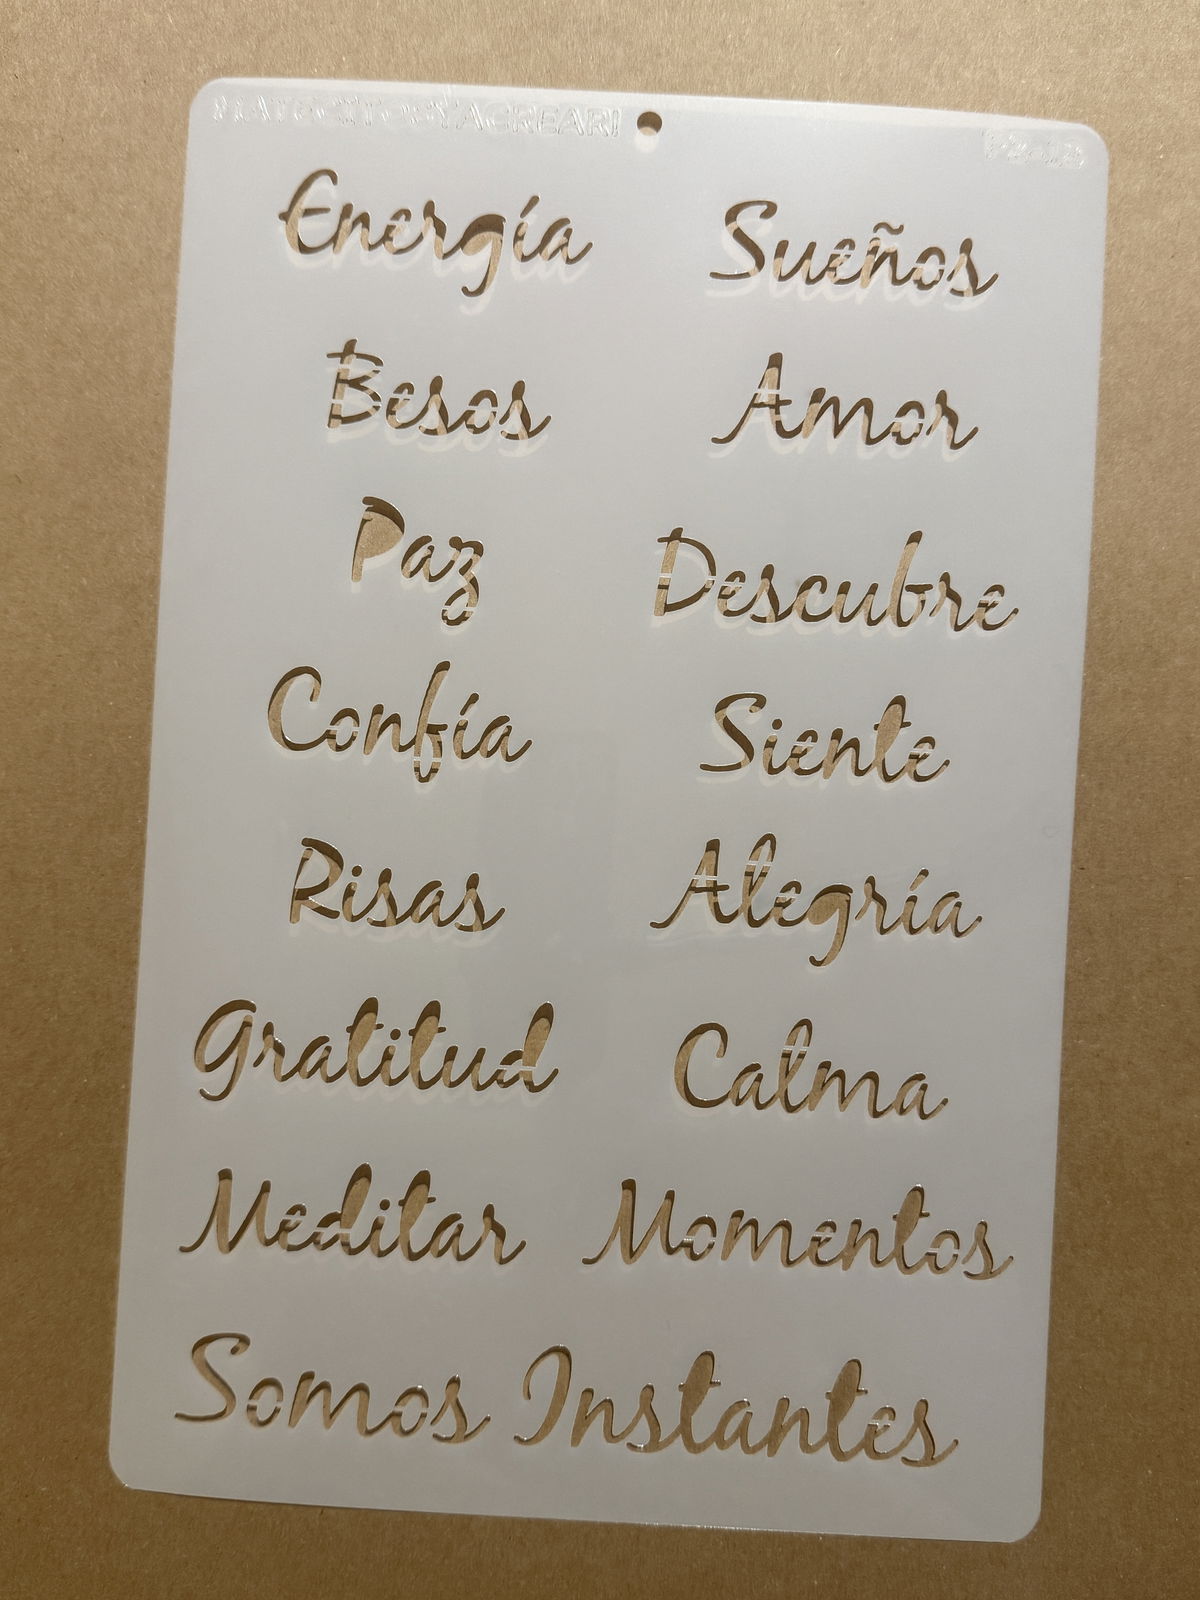 Energía Sueños
Besos Amor
Paz Descubre
Confía Siente
Risas Alegría
Gratitud Calma
Meditar Momentos
Somos Instantes